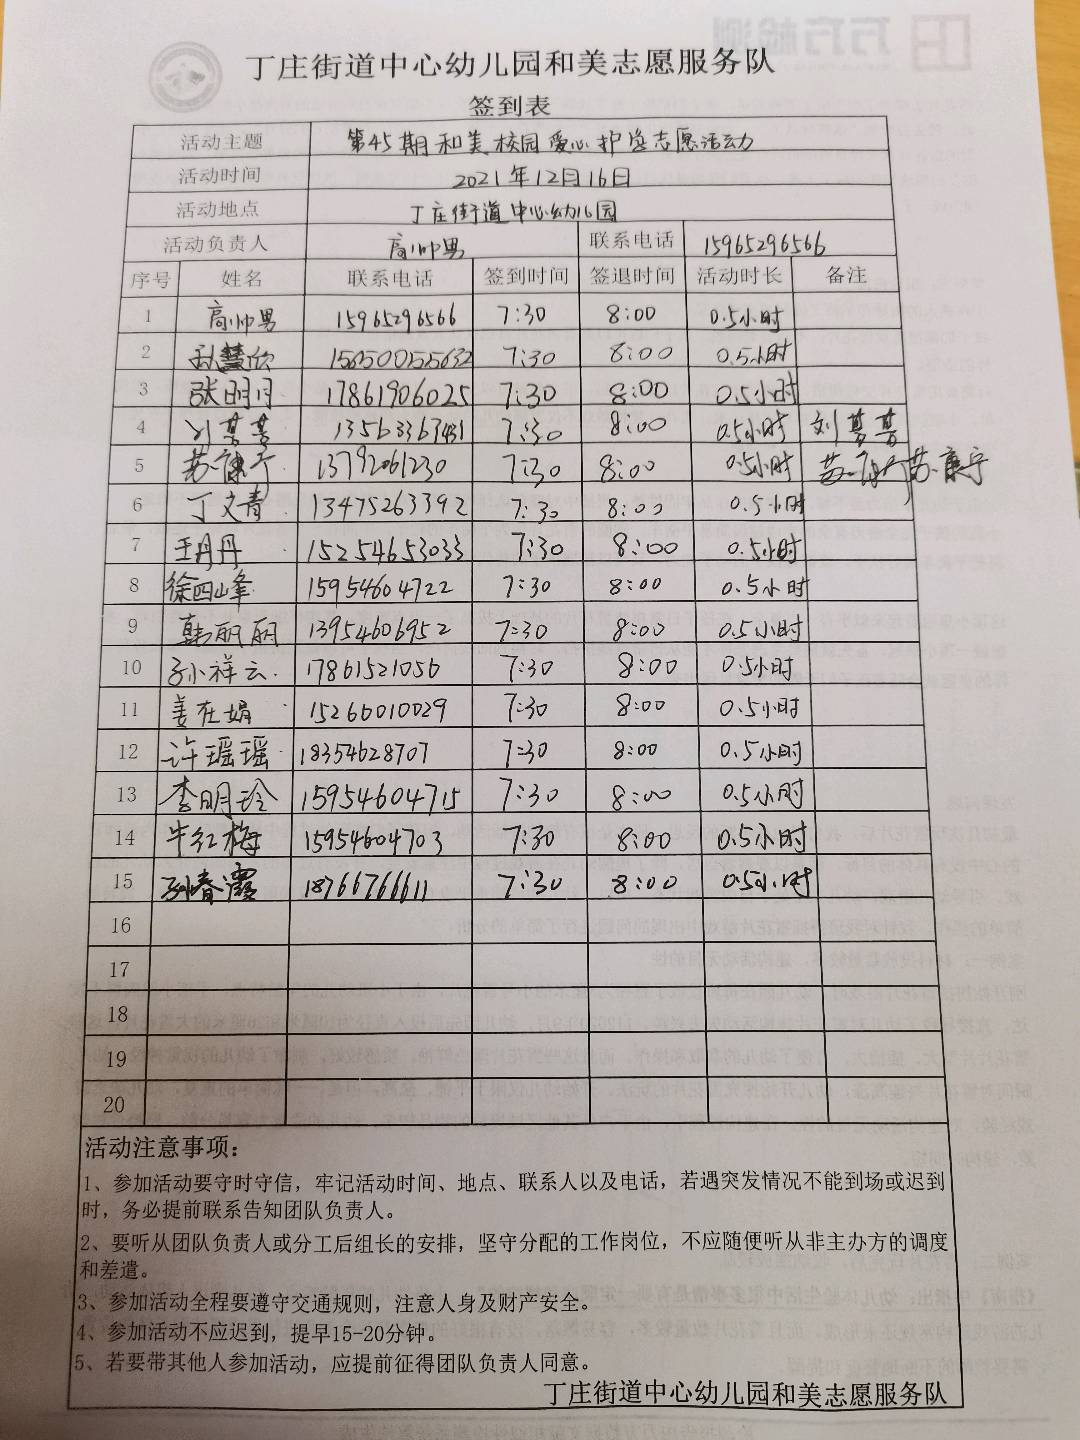 丁庄街道中心幼儿园和美志愿服务队
签到表
活动主题 第45期和美校园爱心护学志愿活动
活动时间 2021年12月16日
活动地点 丁庄街道中心幼儿园
活动负责人 高帅男 联系电话 15965296566
序号 姓名 联系电话 签到时间 签退时间 活动时长 备注
1 高帅男 15965296566 7:30 8:00 0.5小时
2 孙慧欣 15650055632 7:30 8:00 0.5小时
3 张明月 17861906025 7:30 8:00 0.5小时
4 刘梦菩 7:30 8:00 0.5小时 刘梦菩
5 苏康宁 13792061230 7:30 8:00 0.5小时 苏康宁
6 丁文青 13475263392 7:30 8:00 0.5小时
7 王丹丹 15254653033 7:30 8:00 0.5小时
8 徐四峰 15954604722 7:30 8:00 0.5小时
9 韩丽丽 13954606952 7:30 8:00 0.5小时
10 孙祥云 17861521056 7:30 8:00 0.5小时
11 姜在娟 15266010029 7:30 8:00 0.5小时
12 许瑶瑶 18354628707 7:30 8:00 0.5小时
13 李明玲 15954604715 7:30 8:00 0.5小时
14 牛红梅 15954604703 7:30 8:00 0.5小时
15 孙春霞 18766766611 7:30 8:00 0.5小时
16
17
18
19
20
活动注意事项：
1、参加活动要守时守信，牢记活动时间、地点、联系人以及电话，若遇突发情况不能到场或迟到
时，务必提前联系告知团队负责人。
2、要听从团队负责人或分工后组长的安排，坚守分配的工作岗位，不应随便听从非主办方的调度
和差遣。
3、参加活动全程要遵守交通规则，注意人身及财产安全。
4、参加活动不应迟到，提早15-20分钟。
5、若要带其他人参加活动，应提前征得团队负责人同意。
丁庄街道中心幼儿园和美志愿服务队